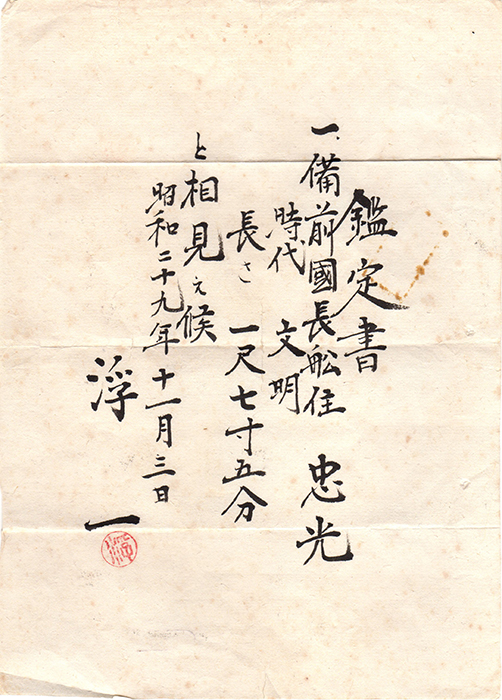 鑑定書
一、備前國長舩住 忠光
時代 文明
長さ 一尺七寸五分
と相見え候
昭和二十九年十一月三日
浮一